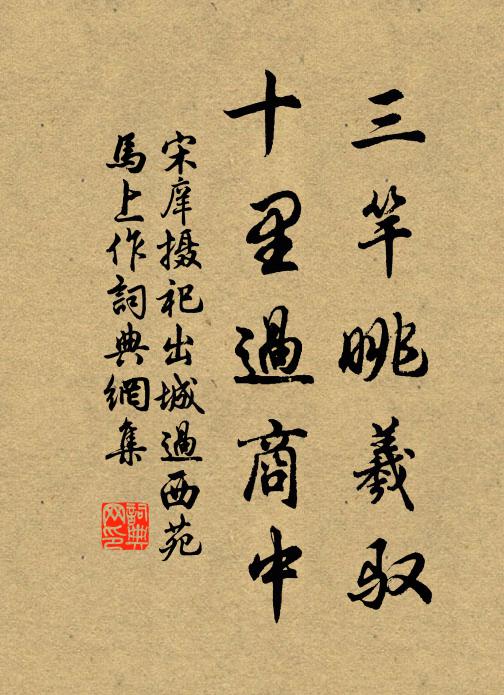 三竿晀羲驭
十里過商中
宋庠摄祀出城過西苑
馬上作詞典網集
詞典
网印